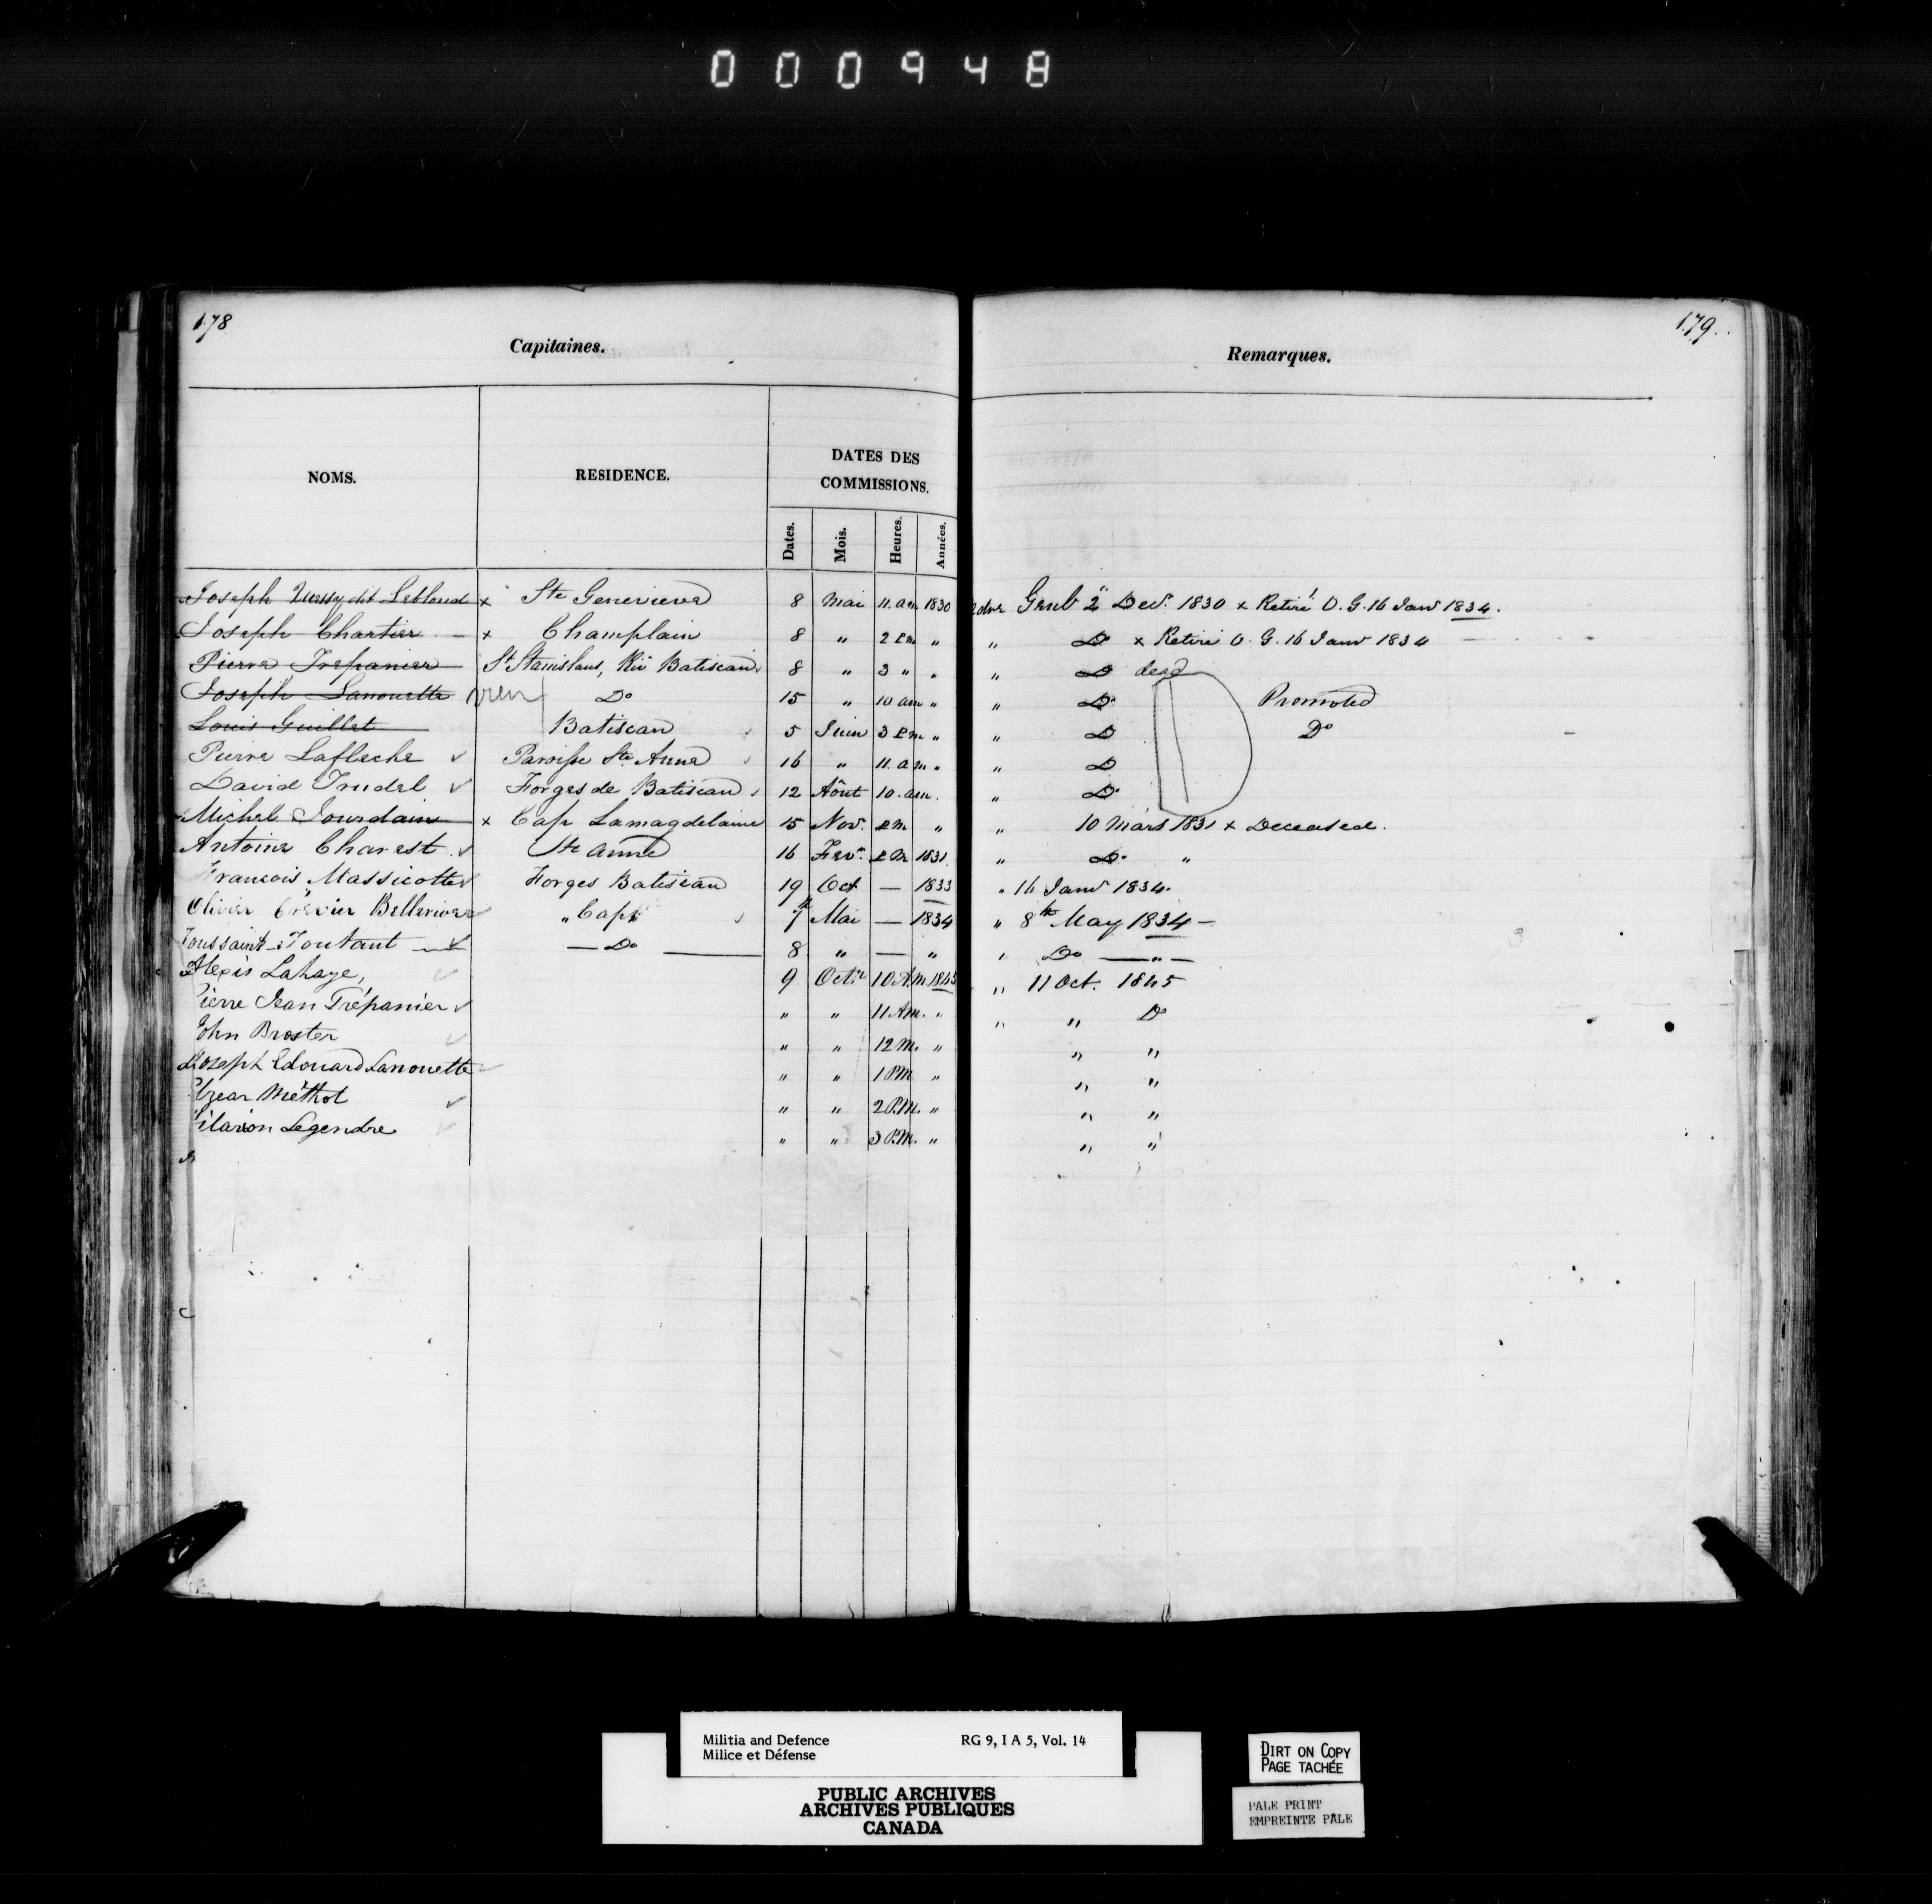 000948
178
Capitaines.
NOMS.
RESIDENCE.
DATES DES
COMMISSIONS.
Dates.
Mois.
Heures.
Années.
179.
Remarques.
Joseph dit Leblond x Ste Genevieve 8 Mai 11. am 1830 Genl 2d Decr 1830 x Retiré O. G. 16 Janr 1834.
Joseph Chartier x Champlain 8 " 2 PM " " Do x Retiré O. G. 16 Janr 1834
Pierre Trepanier St Stanislaus, Riv Batiscan 8 " 3 " " " Do dead
Joseph Lanouette Do 15 " 10 am " " Do Promoted
Louis Guillet Batiscan 5 Juin 3 PM " " Do Do
Pierre Lafleche Paroisse Ste Anne 16 " 11. am " " Do
David Trudel Forges de Batiscan 12 Août 10. am. " Do
Michel Jourdain x Cap Lamagdelaine 15 Nov. PM " " 10 Mars 1831 x Deceased.
Antoine Charest Ste Anne 16 Fevr. PM 1831. " Do "
Francois Massicotte Forges Batiscan 19 Oct — 1833 " 16 Janr 1834.
Olivier Crevier Bellerive " Cap 7 Mai — 1834 " 8th May 1834 —
Toussaint Toutant — Do — 8 " — " " Do — " —
Alexis Lahaye, 9 Octre 10 A.M. 1845 " 11 Oct. 1845
Pierre Jean Trépanier " " 11 Am. " " " Do
John Broster " " 12 M. " " "
Joseph Edouard Lanouette " " 1 PM " " "
Elzear Méthot " " 2 P.M. " " "
Hilarion Legendre " " 3 P.M. " " "
Militia and Defence RG 9, I A 5, Vol. 14
Milice et Défense
PUBLIC ARCHIVES
ARCHIVES PUBLIQUES
CANADA
DIRT ON COPY
PAGE TACHÉE
PALE PRINT
EMPREINTE PÂLE